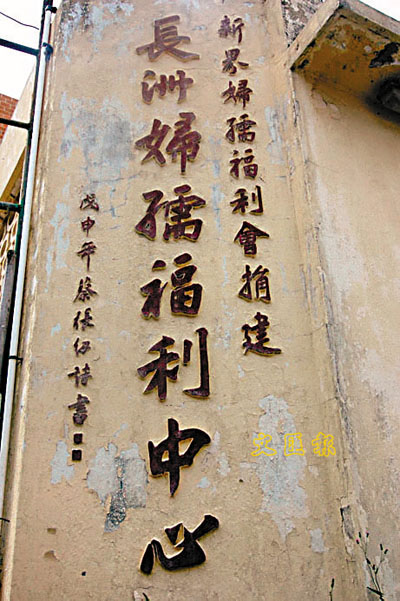 新界婦孺福利會捐建
長洲婦孺福利中心
戊申年黎張紉詩書
文匯報